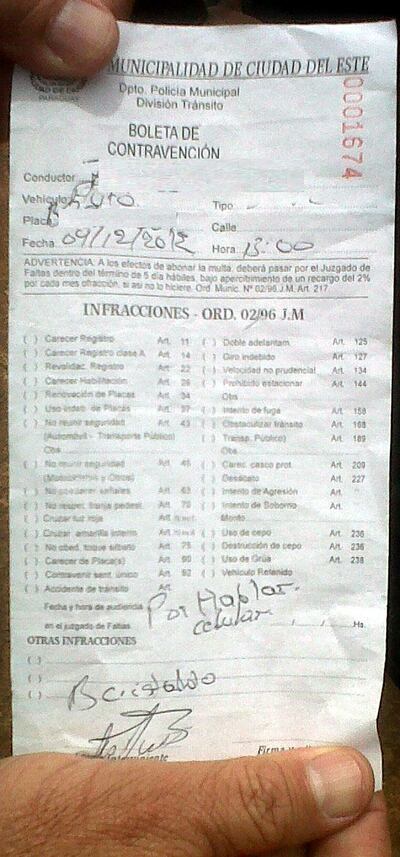 MUNICIPALIDAD DE CIUDAD DEL ESTE
PARAGUAY
Dpto. Policía Municipal
División Tránsito
0001674
BOLETA DE
CONTRAVENCIÓN
Conductor
Vehículo
Tipo
Placa
Calle
Fecha 09/12/2012 Hora 13:00
ADVERTENCIA: A los efectos de abonar la multa, deberá pasar por el Juzgado de
Faltas dentro del término de 5 día hábiles, bajo apercibimiento de un recargo del 2%
por cada mes ofracción, si asi no lo hiciere. Ord. Munic. Nº 02/96 J.M. Art. 217.
INFRACCIONES - ORD. 02/96 J.M
( ) Carecer Registro Art. 11 ( ) Doble adelantam. Art. 125
( ) Carecer Registro clase A Art. 14 ( ) Giro indebido Art. 127
( ) Revalidac. Registro Art. 22 ( ) Velocidad no prudencial Art. 134
( ) Carecer Habilitación Art. 26 ( ) Prohibido estacionar Art. 144
( ) Renovación de Placas Art. 34 Obs
( ) Uso indeb. de Placas Art. 37 ( ) Intento de fuga Art. 158
( ) No reunir seguridad Art. 43 ( ) Obstaculizar tránsito Art. 168
(Automóvil - Transporte Público) ( ) Transp. Público) Art. 189
Obs Obs.
( ) No reunir seguridad Art. 45 ( ) Carec. casco prot. Art. 209
(Motocicletas y Otros) ( ) Desacato Art. 227
( ) No obedecer señales Art. 63 ( ) Intento de Agresión Art.
( ) No respet. franja pedest. Art. 70 ( ) Intento de Soborno Art.
( ) Cruzar luz roja Art. Monto
( ) Cruzar amarilla interm. Art. ( ) Uso de cepo Art. 236
( ) No obed. toque silbato Art. 75 ( ) Destrucción de cepo Art. 236
( ) Carecer de Placa(s) Art. 90 ( ) Uso de Grúa Art. 238
( ) Contravenir sent. único Art. 92 ( ) Vehículo Retenido
( ) Accidente de tránsito Art.
Fecha y hora de audiencia Por Hablar.
en el juzgado de Faltas celular Hs.
OTRAS INFRACCIONES
( )
( )
( ) B cristaldo